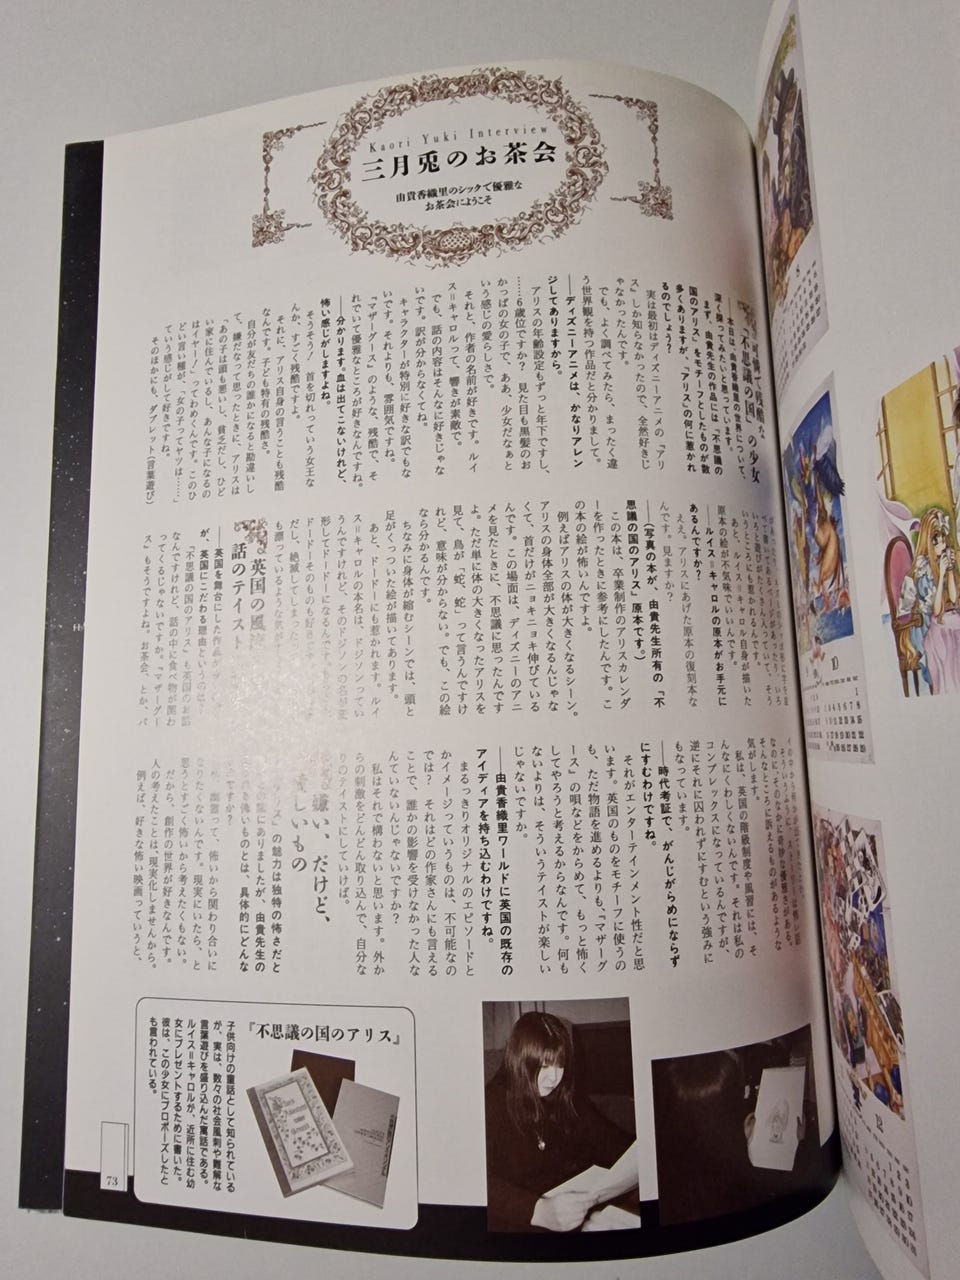 Kaori Yuki Interview
三月兎のお茶会
由貴香織里のシックで優雅な
お茶会にようこそ
可憐で残酷な
『不思議の国』の少女
――本日は、由貴香織里の世界について、
深く探ってみたいと思っています。
まず、由貴先生の作品には『不思議の
国のアリス』をモチーフとしたものが数
多くありますが、『アリス』の何に惹かれ
るのでしょう？
実は最初はディズニーアニメの『アリ
ス』しか知らなかったので、全然好きじ
ゃなかったんです。
でも、よく調べてみたら、まったく違
う世界観を持つ作品だと分かりまして。
――ディズニーアニメは、かなりアレン
ジしてありますから。
アリスの年齢設定もずっと年下ですし、
……6歳位ですか？ 見た目も黒髪のお
かっぱの女の子で、ああ、少女だなぁと
いう感じの愛らしさで。
それと、作者の名前が好きです。ルイ
ス＝キャロルって、響きが素敵で。
でも、話の内容はそんなに好きじゃな
いです。訳が分からなくてね。
キャラクターが特別に好きな訳でもな
いです。それよりも、雰囲気ですね。
『マザーグース』のような、残酷で、そ
れでいて優雅なところが好きなんですね。
――分かります。血は出てこないけれど、
怖い感じがしますよね。
そうそう！ 首を切れっていう女王な
んか、すごく残酷ですよ。
それに、アリス自身の言うことも残酷
なんです。子ども特有の残酷さ。
自分が友だちの誰かになると勘違いし
て、嫌だなって思ったときに、アリスは
「あの子は頭も悪いし、貧乏だし、ひど
い家に住んでいるし、あんな子になるの
はイヤー！」ってわめくんです。このひ
どい言い種が、〝女の子ってヤツは……〟
ていう感じがして好きですね。
そのほかにも、ダブレット（言葉遊び）
いろと遊びがたくさん入っていて、そう
いうところにも惹かれるんです。
あと、ルイス＝キャロル自身が描いた
原本の絵が不気味でいいんです。
――ルイス＝キャロルの原本がお手元に
あるんですか？
ええ。アリスにあげた原本の復刻本な
んです。見ますか？
――（写真の本が、由貴先生所有の『不
思議の国のアリス』原本です。）
この本は、卒業制作のアリスカレンダ
ーを作ったときに参考にしたんです。こ
の本の絵が怖いんですよ。
例えばアリスの体が大きくなるシーン。
アリスの身体全部が大きくなるんじゃな
くて、首だけがニョキニョキ伸びている
んです。この場面は、ディズニーのアニ
メを見たときに、不思議に思ったんです
よ。ただ単に体の大きくなったアリスを
見て、鳥が「蛇、蛇」って言うんですけ
れど、意味が分からない。でも、この絵
なら分かるんです。
ちなみに身体が縮むシーンでは、頭と
足がくっついた絵が描いてあります。
あと、ドードーにも惹かれます。ルイ
ス＝キャロルの本名は、ドジソンってい
うんですけれど、そのドジソンの名が変
形してドードーになるんです
ドードーそのものも好きで
だし、絶滅してしまった
も漂っているような気が
英国の風
話のテイスト
――英国を舞台にした作品が
が、英国にこだわる理由というのは？
『不思議の国のアリス』も英国のお話
なんですけれど、話の中に食べ物が関わ
ってくるじゃないですか。『マザーグー
ス』もそうですよね。お茶会、とか、パ
なのに、そのなかに奇妙な優雅さがある。
そんなところに訴えるものがあるような
気がします。
私は、英国の階級制度や風習には、そ
んなにくわしくないんです。それは私の
コンプレックスになっているんですが、
逆にそれに囚われずにすむという強みに
もなっています。
――時代考証で、がんじがらめにならず
にすむわけですね。
それがエンターテインメント性だと思
います。英国のものをモチーフに使うの
も、ただ物語を進めるよりも、『マザーグ
ース』の唄などをからめて、もっと怖く
してやろうと考えるからなんです。何も
ないよりは、そういうテイストが楽しい
じゃないですか。
――由貴香織里ワールドに英国の既存の
アイディアを持ち込むわけですね。
まるっきりオリジナルのエピソードと
かイメージっていうものは、不可能なの
では？ それはどの作家さんにも言える
ことで、誰かの影響を受けなかった人な
んていないんじゃないですか？
私はそれで構わないと思います。外か
らの刺激をどんどん取り込んで、自分な
りのテイストにしていけば。
嫌い、だけど、
しいもの
』の魅力は独特の怖さだと
にありましたが、由貴先生の
怖いものとは、具体的にどんな
ですか？
って、怖いから関わり合いに
なりたくないんです。現実にいたら、と
思うとすごく怖いから考えたくもない。
だから、創作の世界が好きなんです。
人の考えたことは、現実化しませんから。
例えば、好きな怖い映画っていうと、
『不思議の国のアリス』
子供向けの童話として知られている
が、実は、数々の社会風刺や難解な
言葉遊びを盛り込んだ寓話である。
ルイス＝キャロルが、近所に住む幼
女にプレゼントするために書いた。
彼は、この少女にプロポーズしたと
も言われている。
73
8
10
12